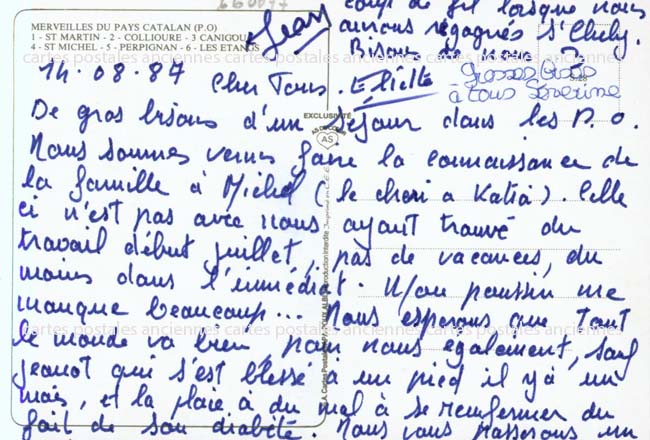 MERVEILLES DU PAYS CATALAN (P.O)
1 - ST MARTIN - 2 - COLLIOURE - 3 CANIGOU
4 - ST MICHEL - 5 - PERPIGNAN - 6 - LES ETANGS
14.08.87
Cher Tous.
De gros bisous d'un séjour dans les P.O.
Nous sommes venus faire la connaissance de
la famille à Michel (le chéri a Katia). Celle
ci n'est pas avec nous ayant trouvé du
travail début juillet, pas de vacances, du
moins dans l'immédiat. Mon poussin me
manque beaucoup... Nous espérons que tout
le monde va bien, pour nous également, sauf
jeanot qui s'est blessé à un pied il y a un
mois, et la plaie à du mal à se renfermer du
fait de son diabète. Nous vous passerons un
coup de fil lorsque nous
aurons regagnés St
Bisous de nous
Jean
Eliette
Grosses bises
à tous Séverine
EXCLUSIVITÉ
AS DE COEUR
AS
Reproduction interdite
cartes postales anciennes cartes postales anciennes cartes postales anciennes
cartes postales anciennes cartes postales anciennes cartes postales anciennes